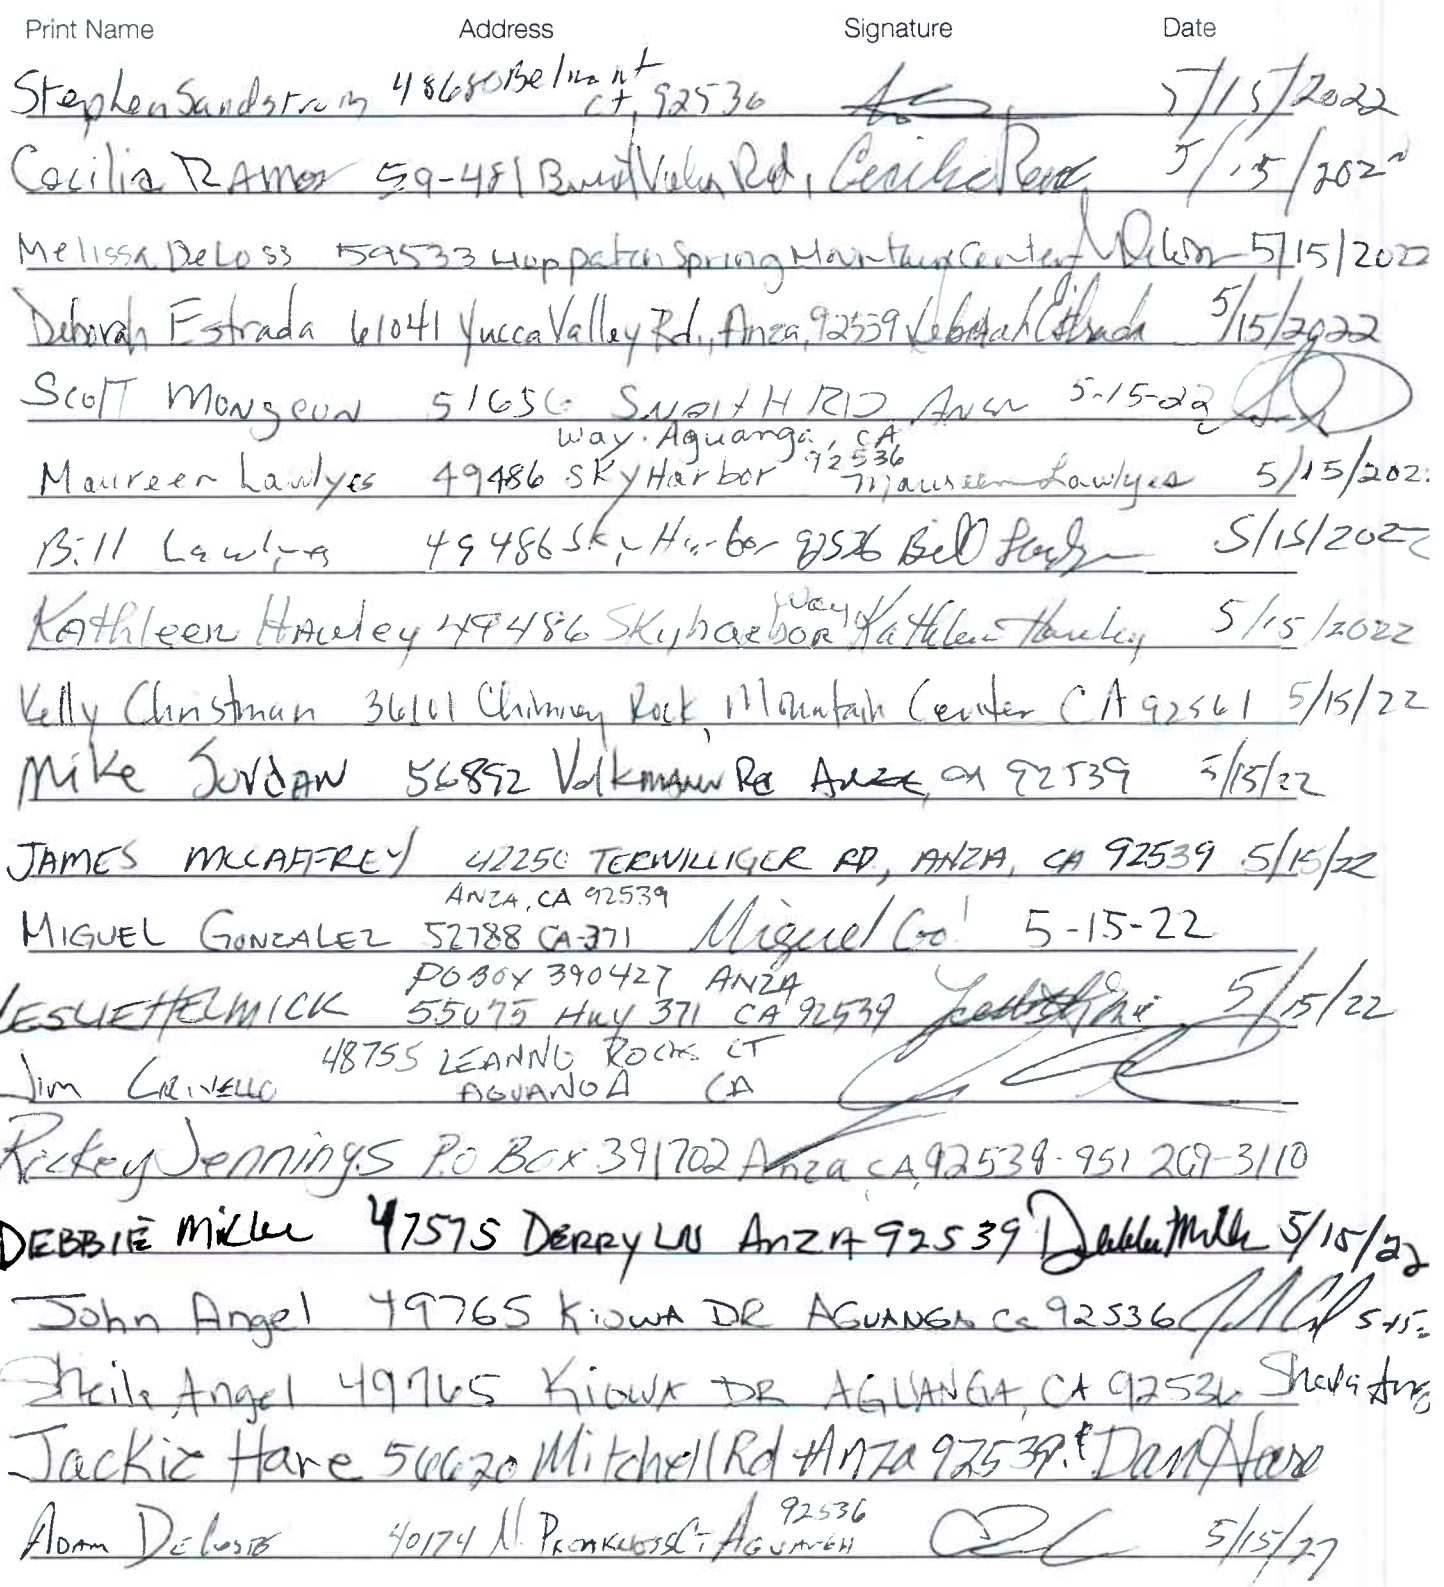 Print Name Address Signature Date
Stephen Sandstrom 48680 Belmont ct, 92536 5/15/2022
Cecilia Ramos 59-481 Rd, Cecilia 5/15/202
Melissa DeLoss 59533 Spring Mountain Center 5/15/2022
Deborah Estrada 61041 Yucca Valley Rd., Anza, 92539 Deborah Estrada 5/15/2022
Scott Mongeon RD 5-15-22
way. Aguanga, CA
Maureen Lawlyes 49486 Sky Harbor 92536 Maureen Lawlyes 5/15/202
Bill Lawlyes 49486 Sky Harbor 92536 Bill 5/15/2022
Way
Kathleen Hawley 49486 Skyharbor Kathleen Hawley 5/15/2022
Kelly Christman 36101 Chimney Rock, Mountain Center CA 92561 5/15/22
Mike Jordan 56892 Volkmann Rd Anza, CA 92539 5/15/22
JAMES MCCAFFREY 42250 TERWILLIGER RD, ANZA, CA 92539 5/15/22
ANZA, CA 92539
MIGUEL GONZALEZ 52788 CA-371 Miguel Go 5-15-22
PO BOX 390427 ANZA
LESLIE HELMICK 55075 Hwy 371 CA 92539 5/15/22
48755 ROCK CT
Jim CRIVELLO AGUANGA CA
Rickey Jennings P.O Box 391702 Anza, CA, 92539-951 269-3110
DEBBIE Miller 47575 DERRY LN ANZA 92539 Debbie Miller 5/15/22
John Angel 49765 KIOWA DR AGUANGA Ca 92536 5-15-
Sheila Angel 49765 KIOWA DR AGUANGA, CA 92536 Sheila Ang
Jackie Hare 56620 Mitchell Rd Anza 92539 & Dan Hare
92536
ADAM DELOSS 40174 N. Ct AGUANGA 5/15/22